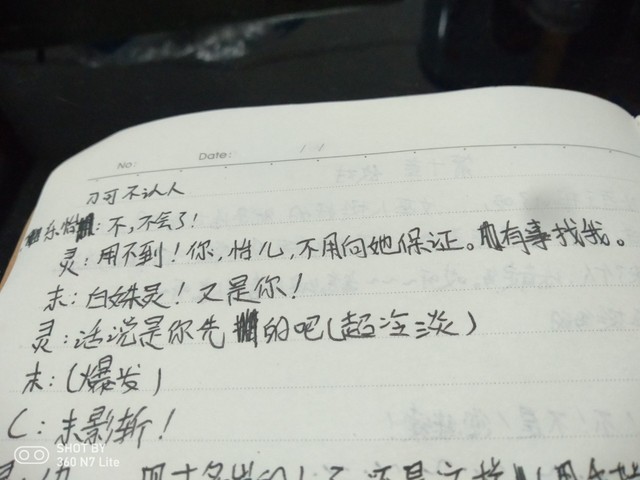 No:
Date:
刀可不认人
乐怡:不,不会了!
灵:用不到!你,怡儿,不用向她保证。有事找我。
末:白姝灵!又是你!
灵:话说是你先的吧(超冷淡)
末:(爆发)
C:末影斩!
SHOT BY
360 N7 Lite